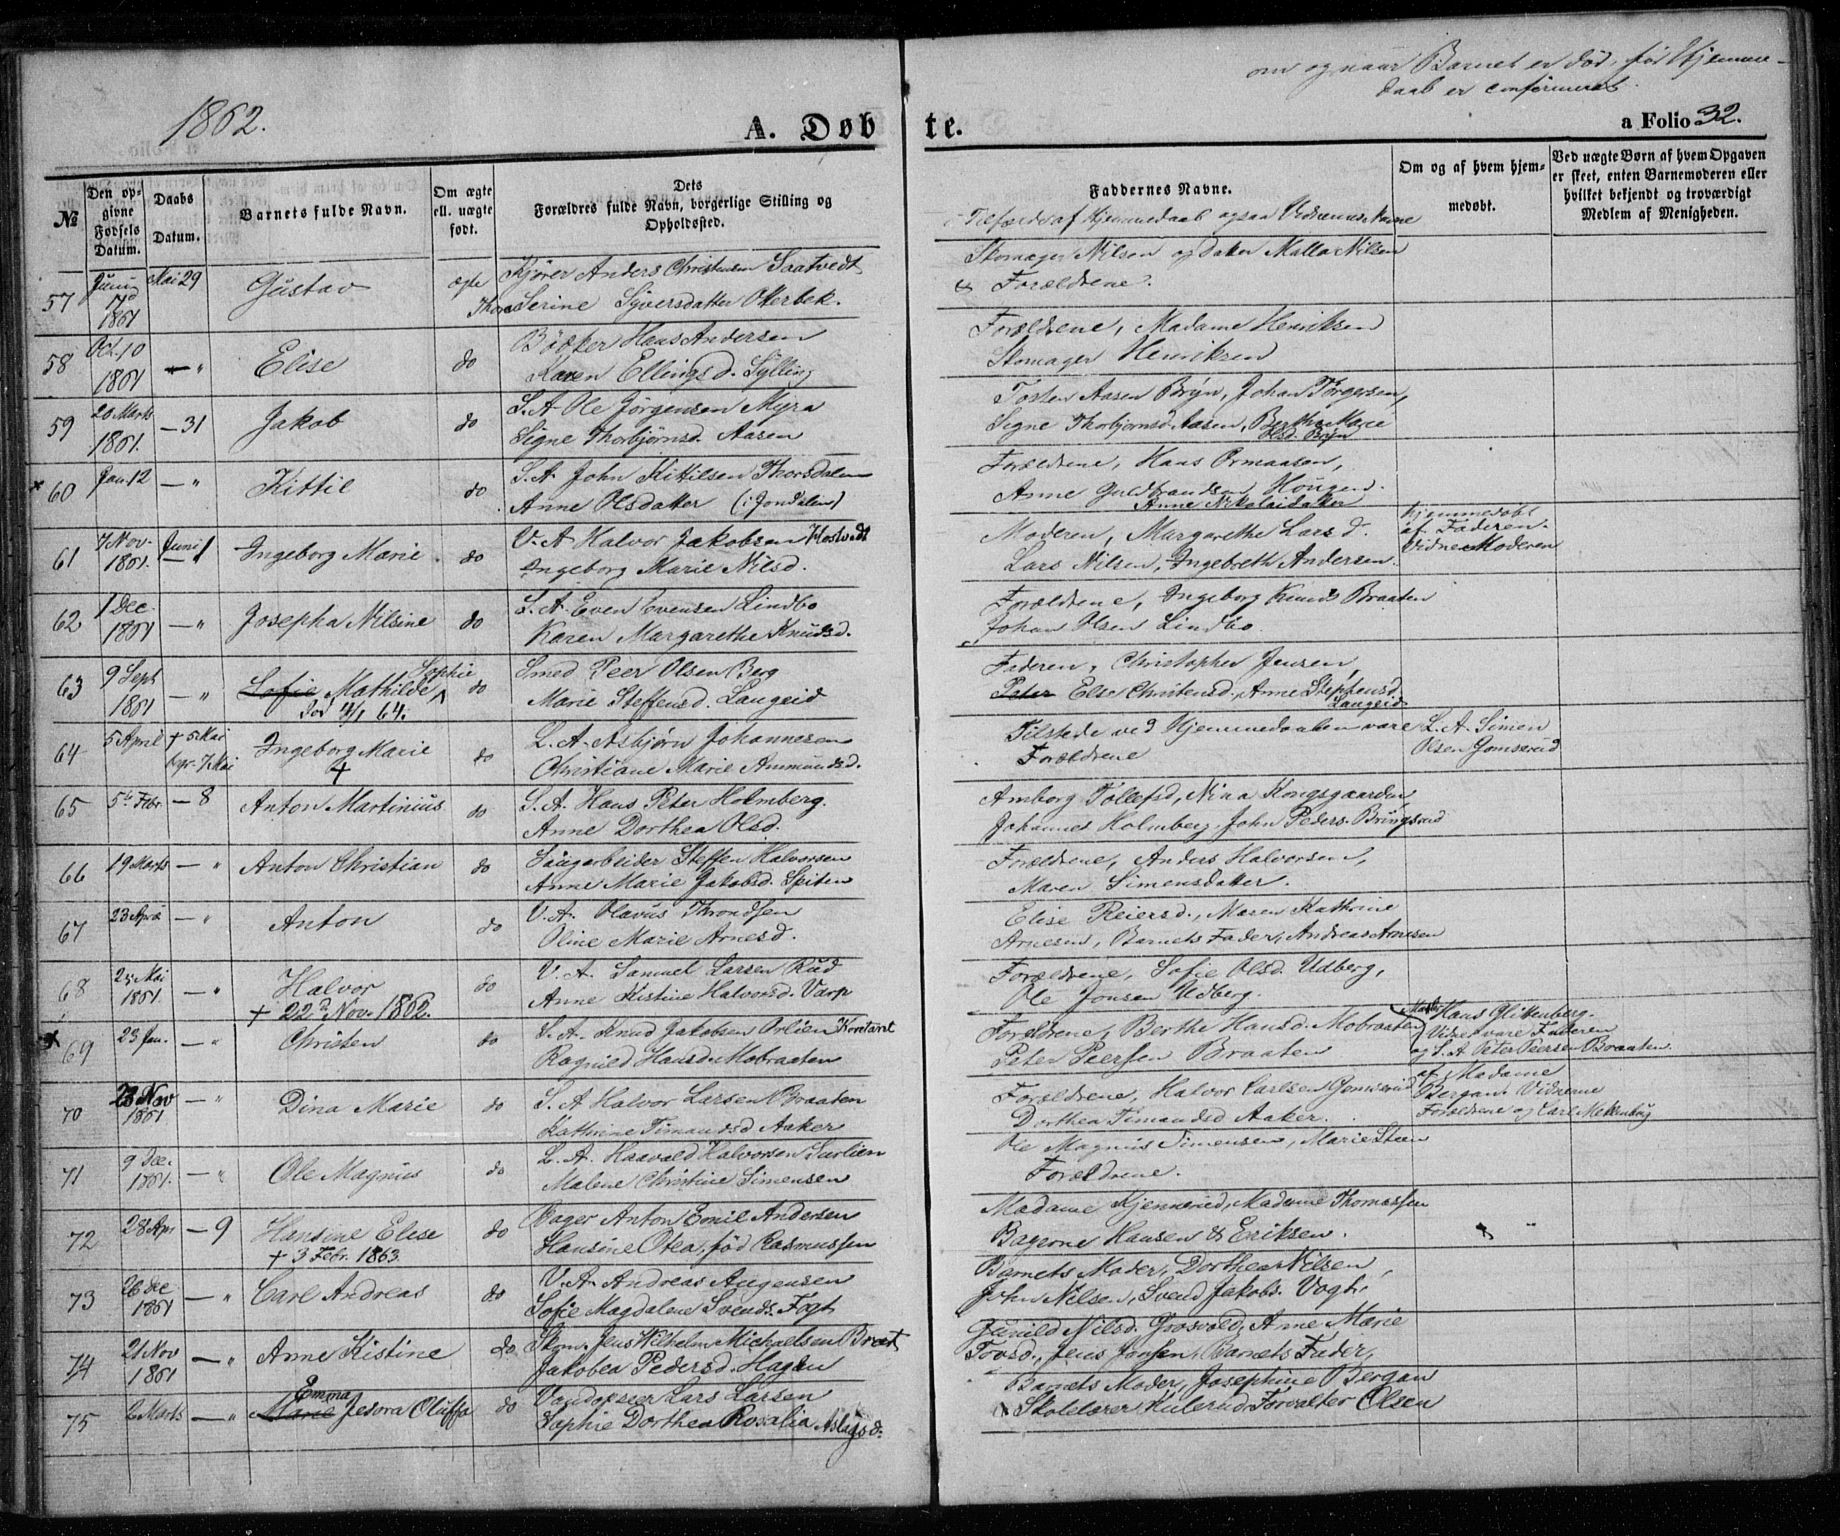 om og naar Barnet er død, før Hjemme-
daab er confirmeret.
1862.
A. Døbte.
a Folio 32.
№
Den opgivne Fødsels Datum.
Daabs Datum.
Barnets fulde Navn.
Om ægte ell. uægte født.
Dets Forældres fulde Navn, borgerlige Stilling og Opholdssted.
Faddernes Navne.
Om og af hvem hjemmedøbt.
Ved uægte Børn af hvem Opgaven er skeet, enten Barnemoderen eller hvilket bekjendt og troværdigt Medlem af Menigheden.
i Tilfælde af Hjemmedaab ogsaa Vidnernes Navne
57 Juni 17d 1861 Mai 29 Gustav ægte Kjører Anders Christensen Saatvedt
Thore Serine Syversdatter Oterbek.
Skomager Nilsen og Datter Malla Nilsen
& Forældrene.
58 Oct. 10 1861 — " Elise do Bødker Hans Andersen
Karen Ellingsd. Sylling
Forældrene, Madame Henriksen
Skomager Henriksen
59 20 Marts 1861. — 31 Jakob do S. A. Ole Jørgensen Myra
Signe Thorbjørnsd. Aasen
Tosten Aasen Bryn, Johan Torgersen,
Signe Thorbjørnsd. Aasen, Berthe Marie
Olsd. Bryn
x 60 Jan. 12 — " Kittil do S. A. John Kittilsen Thorsdalen
Anne Olsdatter (: Jondalen)
Forældrene, Hans Ormaasen,
Anne Guldbrandsen Hougen.
Anne Nikolaidatter
61 7 Nov. 1861. Juni 1 Ingeborg Marie do V. A. Halvor Jakobsen Kostvedt
Ingeborg Marie Nilsd.
Moderen, Margarethe Larsd.
Lars Nilsen, Ingebreth Andersen.
Hjemmedøbt
af Faderen.
Vidne Moderen
62 1 Dec. 1861 — " Josepha Nilsine do S. A. Even Evensen Lindbo
Karen Margarethe Knudsd.
Forældrene, Ingeborg Knuds Braaten
Johan Olsen Lindbo.
63 9 Sept 1861 — " Sofie Mathilde Sophie do Smed Peer Olsen Berg
død 4/1 64.
Marie Steffensd. Langeid
Faderen, Christopher Jensen,
Peter Else Christensd., Anne Stephensd.
Langeid
64 5 April + 5 Mai byr. 7 Mai Ingeborg Marie + do L. A. Asbjørn Johannesen
Christiane Marie Ammundsd.
Tilstede ved Hjemmedaaben vare
Forældrene
L. A. Simen
Olsen Gomserud
65 5te Febr. — 8 Anton Martinius do S. A. Hans Peter Holmberg.
Anne Dorthea Olsd.
Amborg Tollefsd, Nina Kongsgaarden
Johannes Holmberg, John Peders. Bringsrud
66 19 Marts — " Anton Christian do Saugarbeider Steffen Halvorsen
Anne Marie Jakobsd. Spiten
Forældrene, Anders Halvorsen,
Maren Simensdatter.
67 23 April — " Anton do V. A. Olavus Throndsen
Oline Marie Arnesd.
Elise Reiersd., Maren Kathrine
Arnesen, Barnets Fader, Andreas Arnesen
68 25 Mai 1861 — " Halvor do V. A. Samuel Larsen Rud
+ 22d Nov. 1862.
Anne Kistine Halvorsd. Varp
Forældrene, Sofie Olsd. Udberg,
Ole Jonsen Udberg.
x 69 23 Jan. — " Christen do S. A. Knud Jakobsen Orlien
Ragnild Hansd. Mobraaten
Forældrene, Berthe Hansd. Mobraaten
Peter Peersen Braaten
Hans Glittenberg.
Vidner vare Faderen
og S. A. Peter Peersen Braaten.
70 23 Nov 1861 — " Dina Marie do S. A. Halvor Larsen Braaten
Kathrine Timandsd Aaker
Forældrene, Halvor Carlsen Gomserud
Dorthea Timandsd Aaker.
af Madame
Bergan. Vidnerne
Forældrene og Carl Meklenborg
71 9 Dec. 1861. — " Ole Magnus do L. A. Haavald Halvorsen Sarlien
Malene Christine Simensen
Ole Magnus Simensen, Marie Steen
Forældrene.
72 28 Apr — 9 Hansine Elise do Bager Anton Emil Andersen
+ 3 Febr. 1863
Hansine Otea, fød Rasmussen
Madame Kjennerud, Madame Thomassen
Bagerne Hansen & Eriksen.
73 26 Dec 1861 — " Carl Andreas do V. A. Andreas Augensen
Sofie Magdalene Svends. Fogt
Barnets Moder, Dorthea Nilsen,
John Nilsen, Svend Jakobs. Vogt,
74 21 Nov 1861 — " Anne Kistine do Skom. Jens Wilhelm Michaelsen Bræt
Jakobea Pedersd. Hagen
Gunild Nilsd. Grosvold, Anne Marie
Tovsd., Jens Jansen, Barnets Fader,
75 6 Marts — " Marie Emma Jedora Oluffa do Lars Larsen
Sophie Dorthea Rosalia Aslagsd.
Barnets Moder, Josephine Bergan
Skolelærer Hulerud, Forvalter Olsen